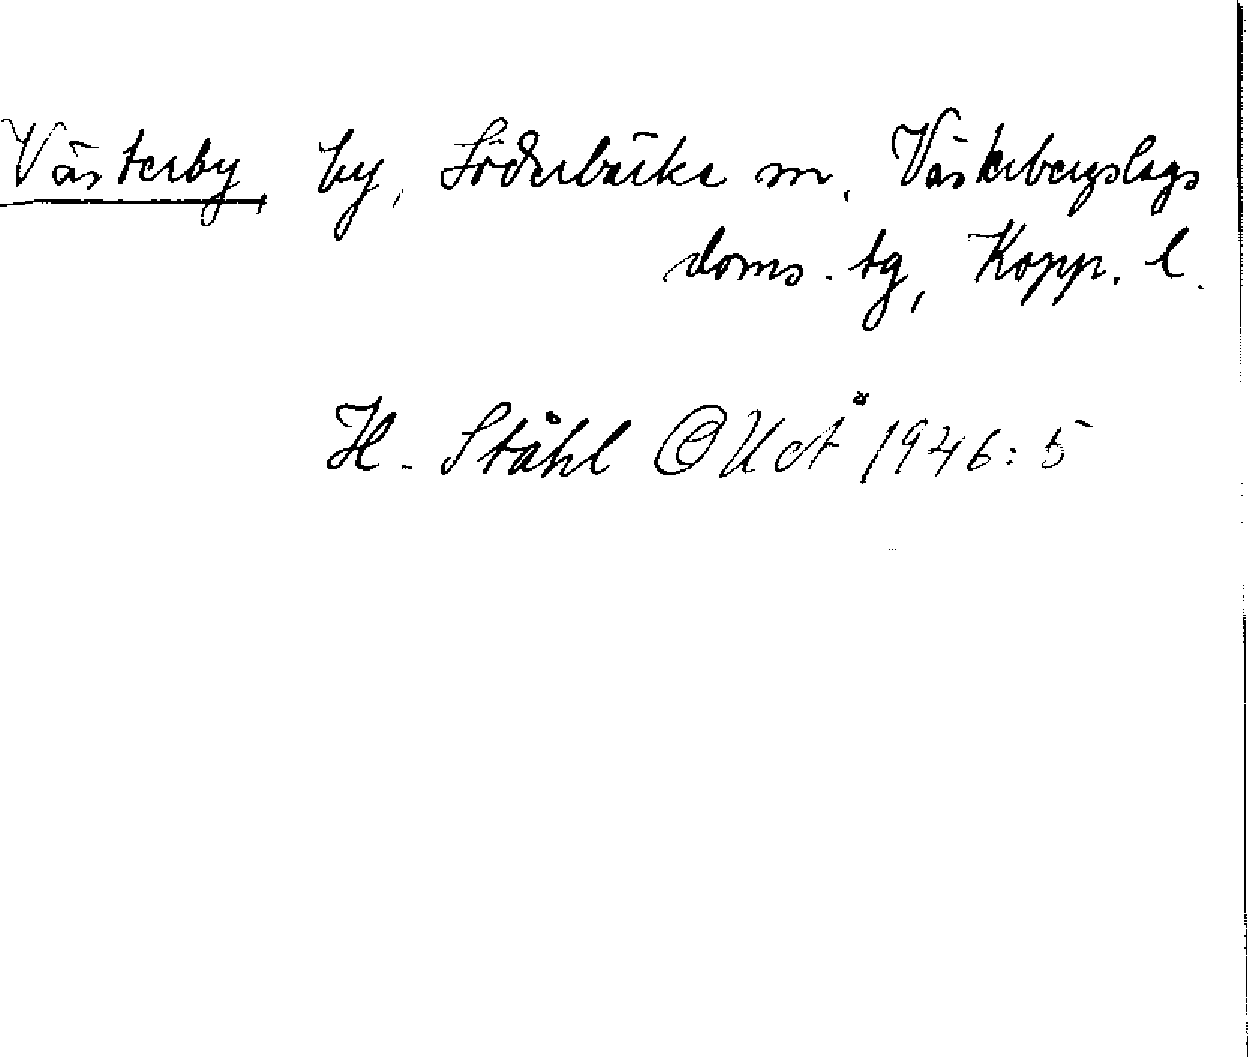 Västerby, by, Söderbärke sn, Västerbergslags
doms. tg, Kopp. l.
H. Ståhl © UoÅ 1946:5